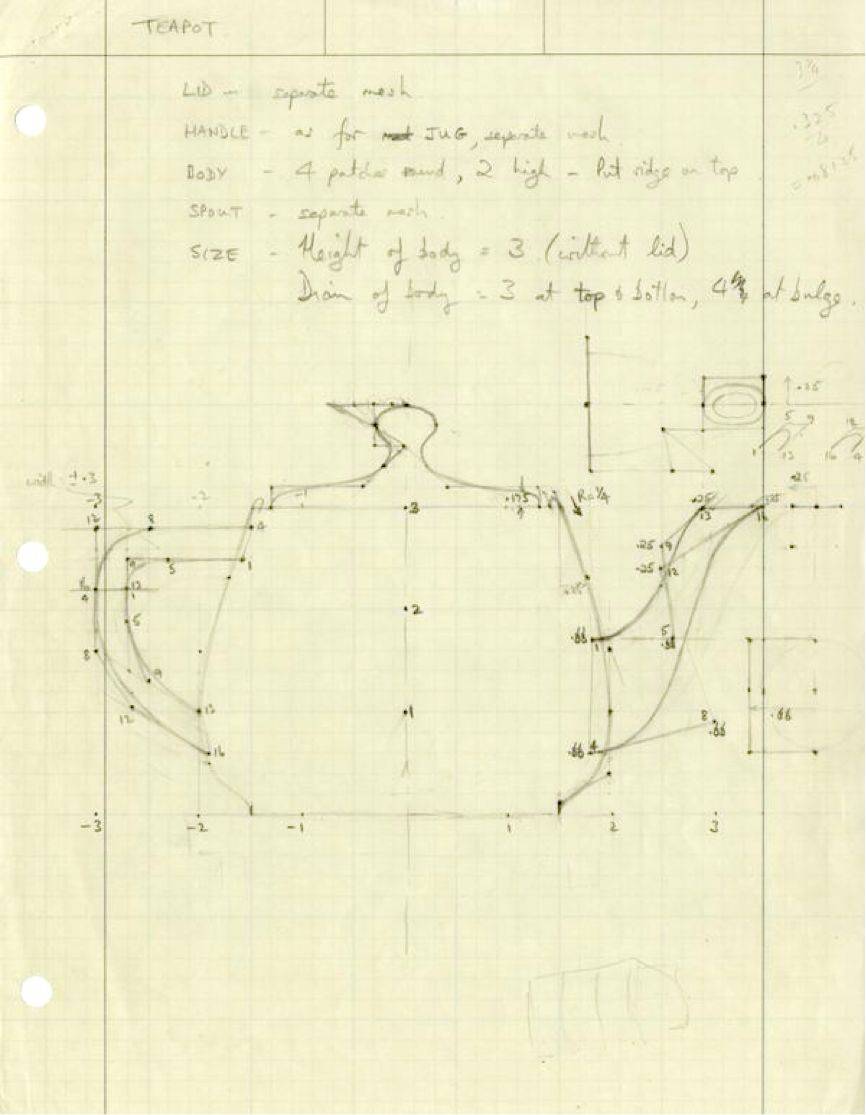 TEAPOT
LID - separate mesh
HANDLE - as for JUG, separate mesh
BODY - 4 patches round, 2 high - Put ridge on top
SPOUT - separate mesh.
SIZE - Height of body = 3 (without lid)
Diam of body = 3 at top & bottom, 4 at bulge.
3¼
.325
.25
5 9
1 13 16 4
width = ±.3
-3 -2 -1
12 8 4
9 5 1
12
1
4
5
8
9
12
13
16
3
2
1
.175
R=¼
.25 13
.25 16
.25
.25 9
.25 12
.66 1
5
.66
8
.66
.66 4
.66
-3 -2 -1 1 2 3